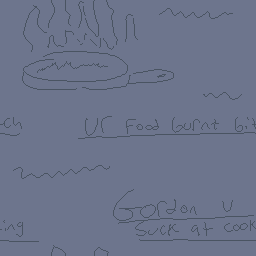 ch
Ur Food burnt bit
Gordon u
ing
Suck at cook